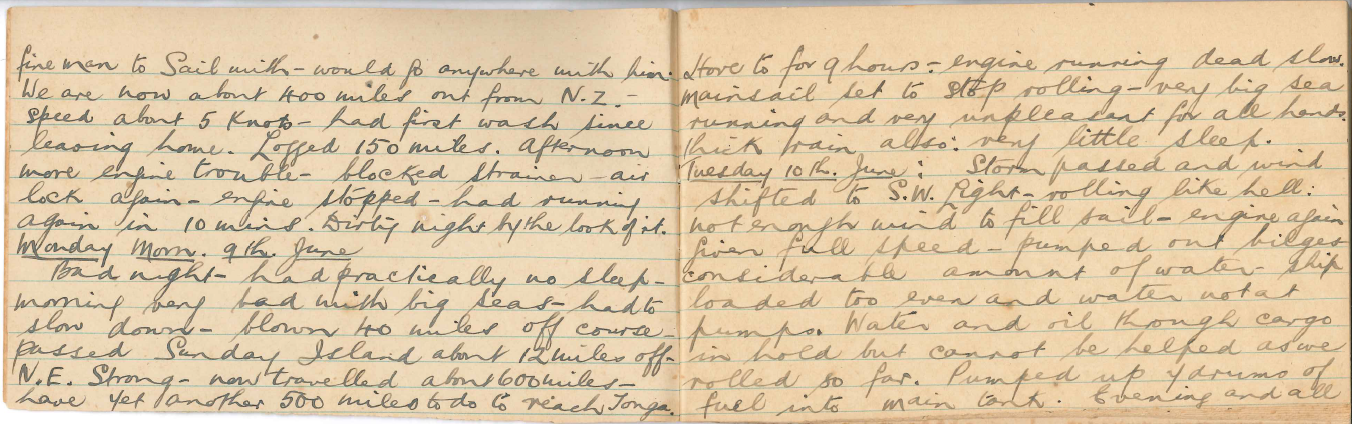 fine man to Sail with - would go anywhere with him.
We are now about 400 miles out from N.Z. -
speed about 5 Knots - had first wash since
leaving home. Logged 150 miles. Afternoon
more engine trouble - blocked strainer - air
lock again - engine stopped - had running
again in 10 mins. Dirty night by the look of it.
Monday Morn. 9th. June
Bad night - had practically no sleep -
morning very bad with big seas - had to
slow down - blown 40 miles off course -
passed Sunday Island about 12 miles off -
N.E. Strong - now travelled about 600 miles -
have yet another 500 miles to do to reach Tonga.
Hove to for 9 hours - engine running dead slow.
Mainsail set to stop rolling - very big sea
running and very unpleasant for all hands.
Thick rain also: very little sleep.
Tuesday 10th. June: Storm passed and wind
shifted to S.W. Light - rolling like hell:
not enough wind to fill sail - engine again
given full speed - pumped out bilges
considerable amount of water - ship
loaded too even and water not at
pumps. Water and oil through cargo
in hold but cannot be helped as we
rolled so far. Pumped up 4 drums of
fuel into main tank. Evening and all